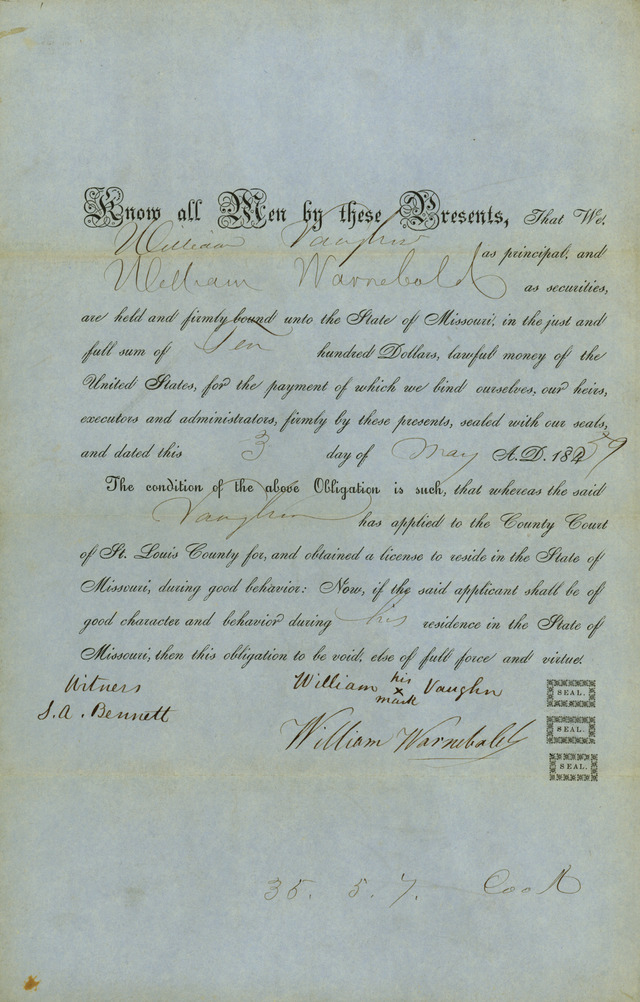 Know all Men by these Presents, That We,
William Vaughn as principal, and
William Warnebold as securities,
are held and firmly bound unto the State of Missouri, in the just and
full sum of Ten hundred Dollars, lawful money of the
United States, for the payment of which we bind ourselves, our heirs,
executors and administrators, firmly by these presents, sealed with our seals,
and dated this 3 day of May A.D. 1859
The condition of the above Obligation is such, that whereas the said
Vaughn has applied to the County Court
of St. Louis County for, and obtained a license to reside in the State of
Missouri, during good behavior: Now, if the said applicant shall be of
good character and behavior during his residence in the State of
Missouri, then this obligation to be void, else of full force and virtue.
Witness
S.A. Bennett
William his x mark Vaughn SEAL.
William Warnebold SEAL.
SEAL.
35. 5. 7. Cook